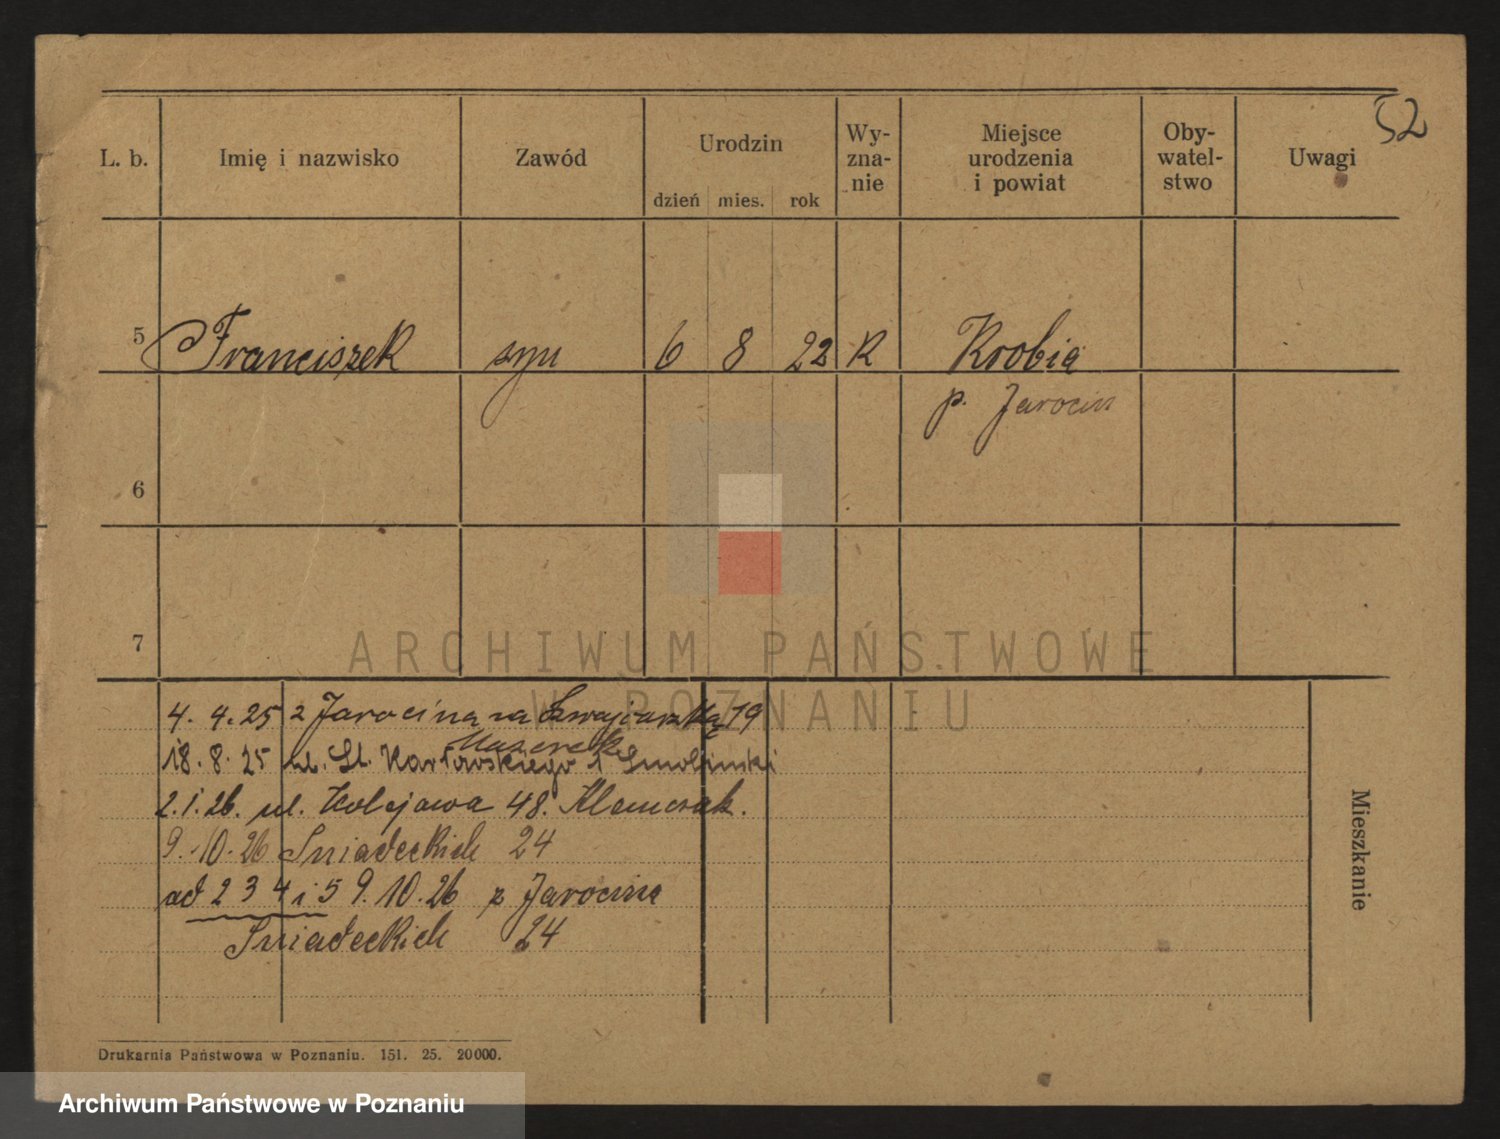 52
L. b. Imię i nazwisko Zawód Urodzin dzień mies. rok Wy-zna-nie Miejsce urodzenia i powiat Oby-watel-stwo Uwagi
5 Franciszek syn 6 8 22 K Krobia
p. Jarocin
6
7
ARCHIWUM PAŃSTWOWE
W POZNANIU
4. 4. 25 z Jarocina na Szwajcarską 19
18. 8. 25 ul. St. Karłowskiego 1 Smoliński
2. 1. 26. ul. Kolejowa 48. Klemczak.
9. 10. 26 Śniadeckich 24
ad 2 3 4 i 5 9. 10. 26 z Jarocina
Śniadeckich 24
Mieszkanie
Drukarnia Państwowa w Poznaniu. 151. 25. 20000.
Archiwum Państwowe w Poznaniu